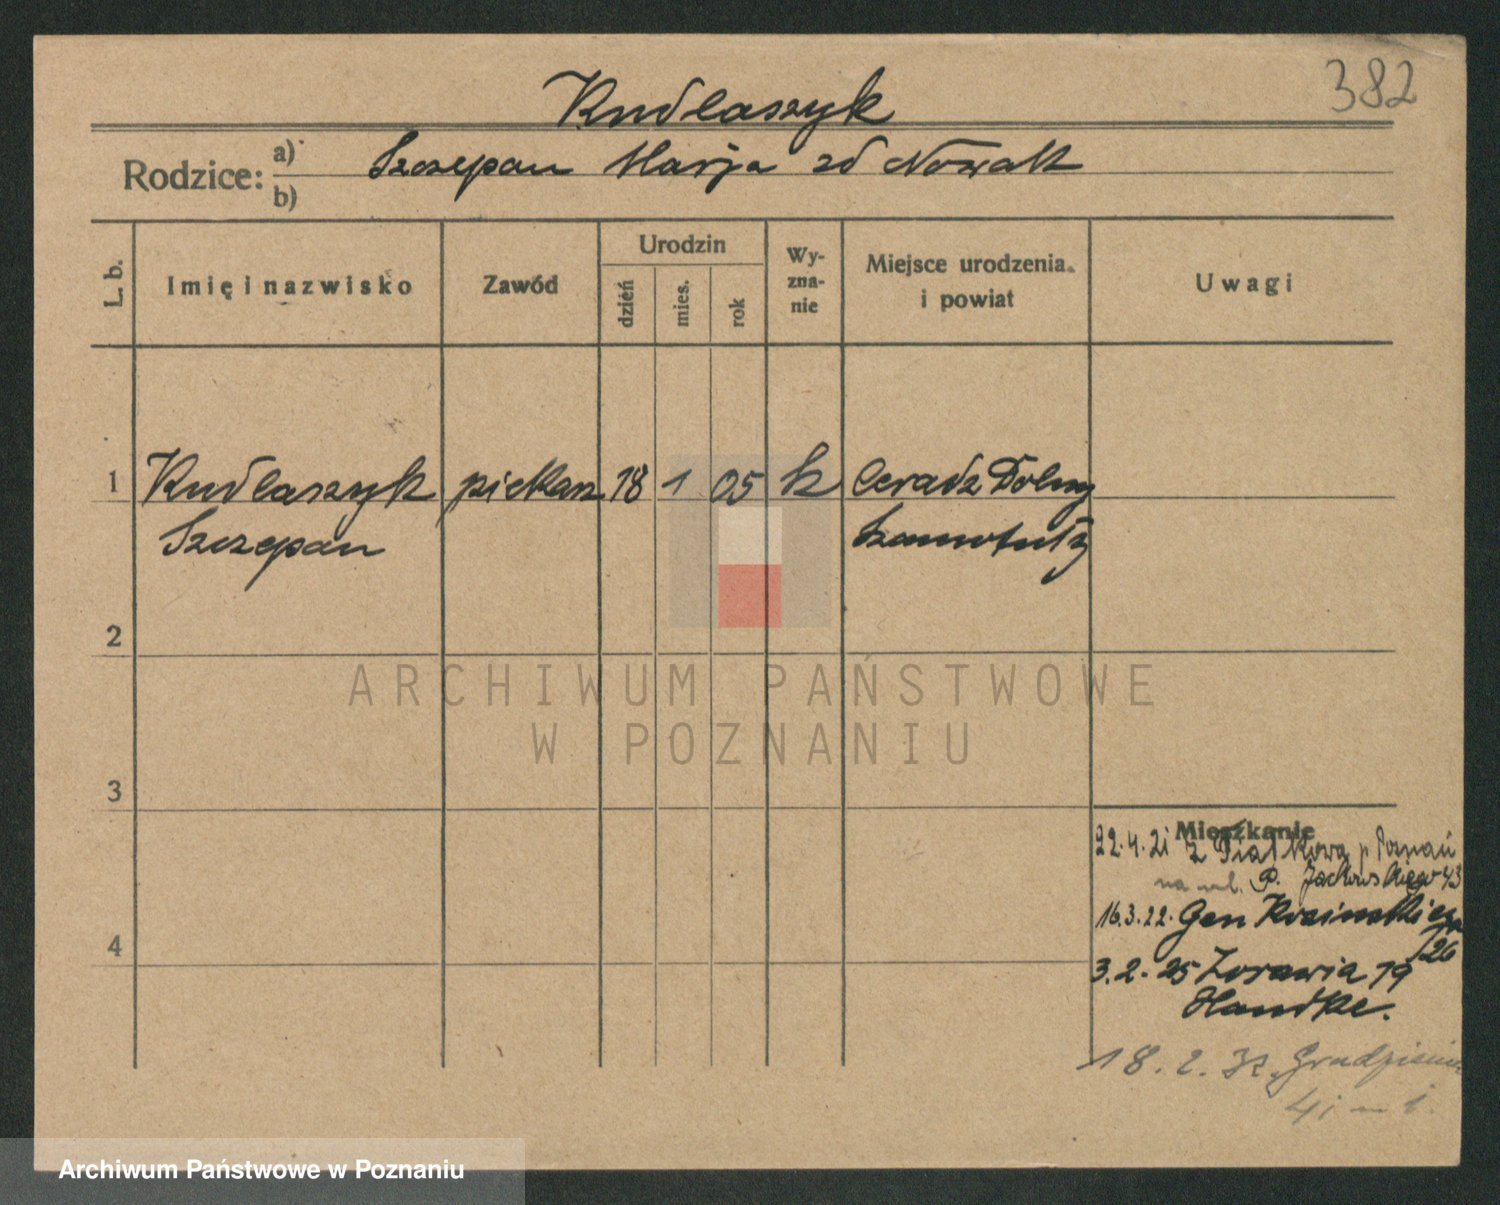 382
Kudlaszyk
Rodzice: a) b) Szczepan Marja zd Nowak
L. b. Imię i nazwisko Zawód Urodzin dzień mies. rok Wyznanie Miejsce urodzenia i powiat Uwagi
1 Kudlaszyk piekarz 18 1 05 k Ceradz Dolny
Szczepan Szamotuły
2
3
4
Mieszkanie
22.4.21 z Piątkowa p Poznań
na ul. P. Jackowskiego 43
16.3.22. Gen
26
3.2.25 Zorawia 19
Handke.
18.2.
ARCHIWUM PAŃSTWOWE
W POZNANIU
Archiwum Państwowe w Poznaniu